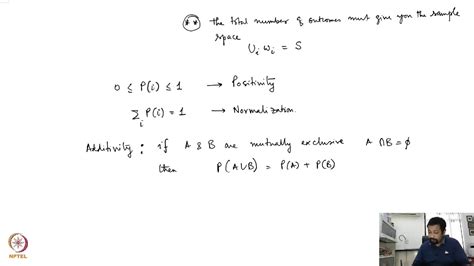 ** the total number of outcomes must give you the sample
space
∪i ωi = S
0 ≤ P(i) ≤ 1 → Positivity
∑i P(i) = 1 → Normalization.
Additivity : if A & B are mutually exclusive A ∩ B = ϕ
then P(A ∪ B) = P(A) + P(B)
NPTEL